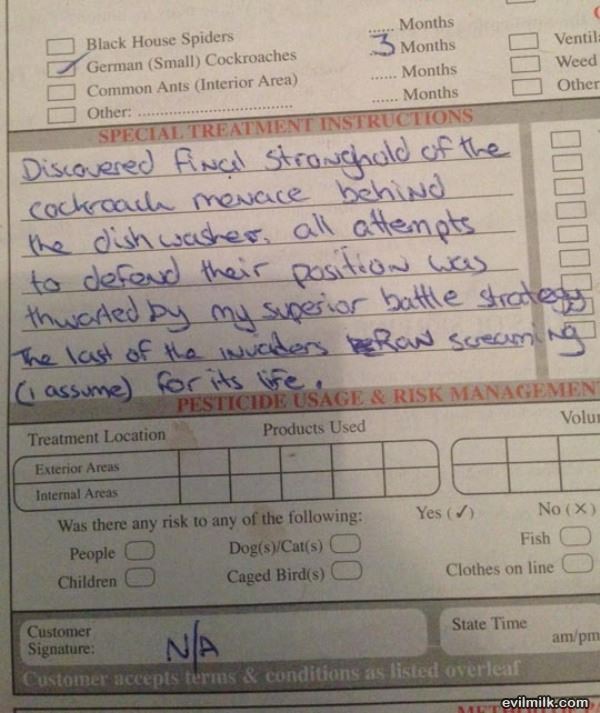 Black House Spiders ...... Months
German (Small) Cockroaches 3 Months Ventil
Common Ants (Interior Area) ...... Months Weed
Other: ........................................ ...... Months Other
SPECIAL TREATMENT INSTRUCTIONS
Discovered Final Stronghold of the
cockroach menace behind
the dishwasher, all attempts
to defend their position was
thwarted by my superior battle strategy
The last of the invaders Ran screaming
(i assume) for its life.
PESTICIDE USAGE & RISK MANAGEMEN
Treatment Location Products Used Volu
Exterior Areas
Internal Areas
Was there any risk to any of the following: Yes (✓) No (✗)
People Dog(s)/Cat(s) Fish
Children Caged Bird(s) Clothes on line
Customer State Time
Signature: N/A am/pm
Customer accepts terms & conditions as listed overleaf
evilmilk.com